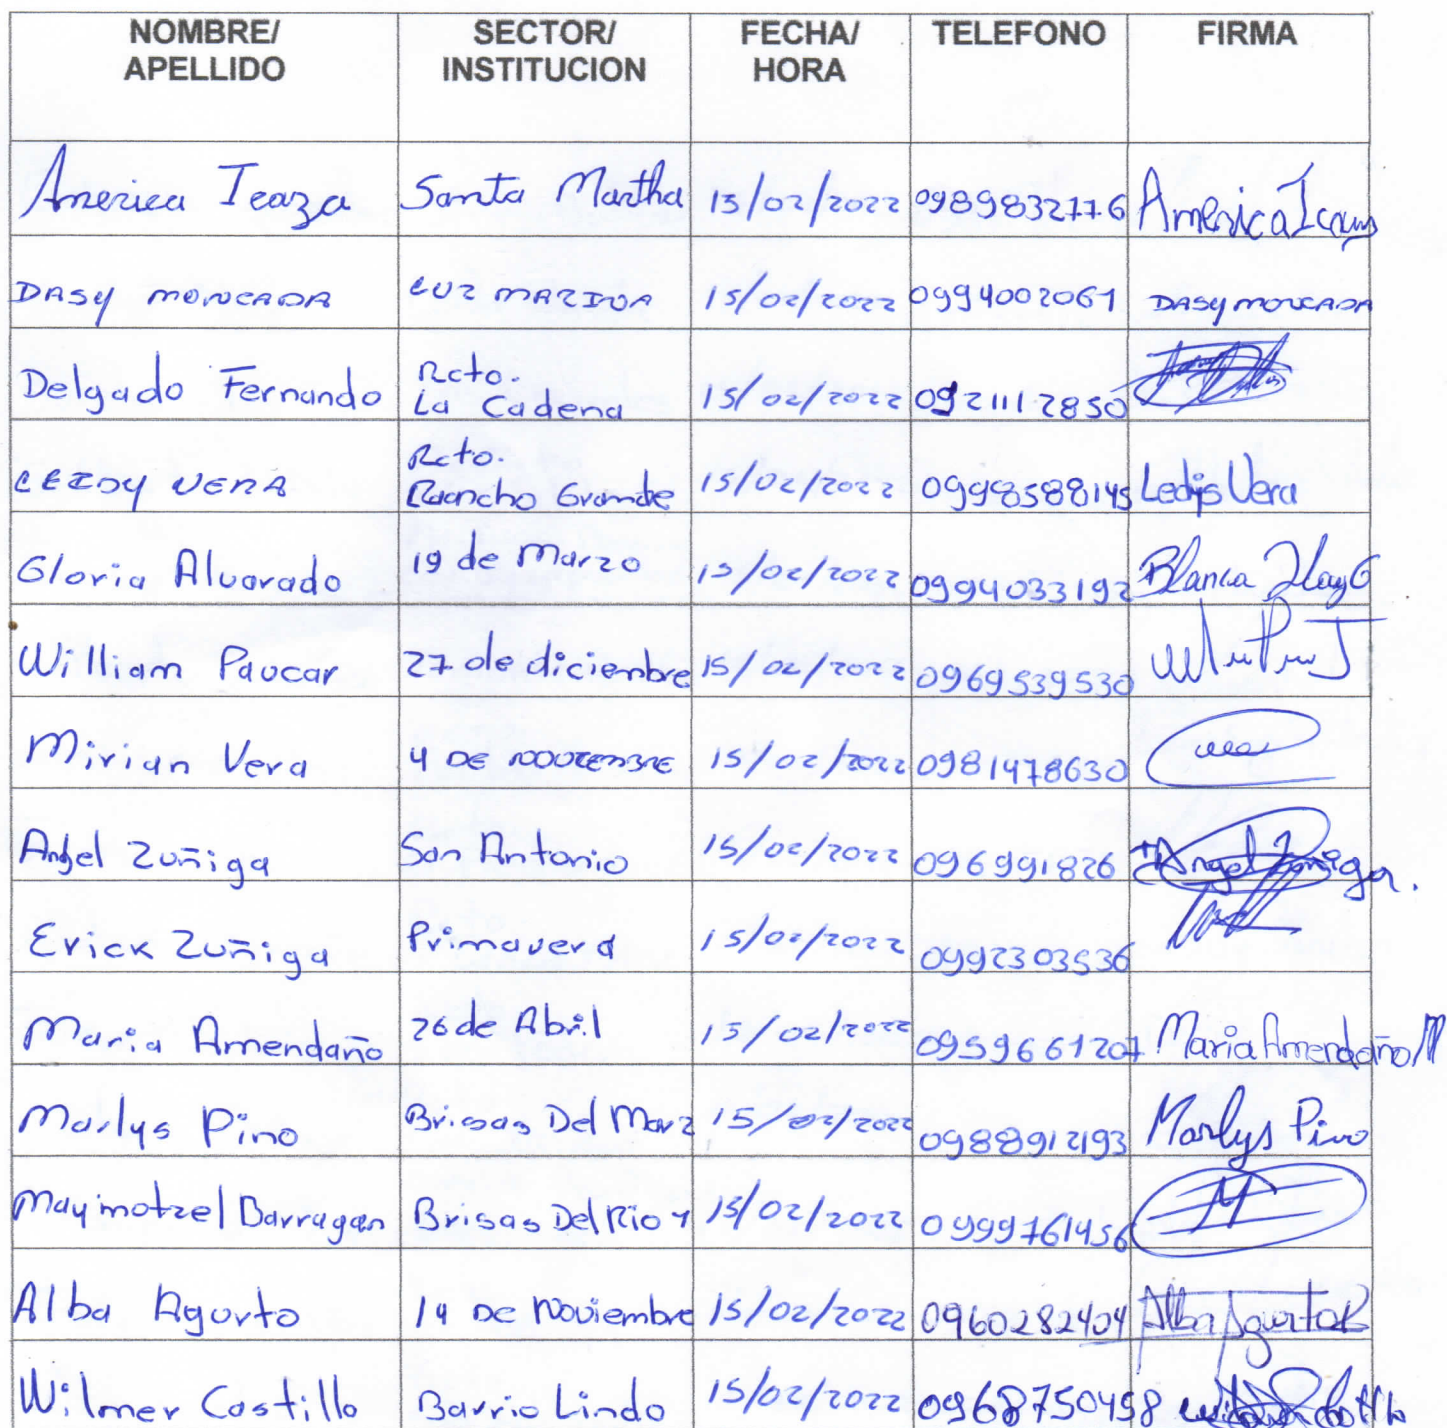 NOMBRE/ APELLIDO SECTOR/ INSTITUCION FECHA/ HORA TELEFONO FIRMA
America Icaza Santa Martha 15/02/2022 0989832776 America Icaza
DASY MONCADA LUZ MARINA 15/02/2022 0994002061 DASY MONCADA
Delgado Fernando Rcto. La Cadena 15/02/2022 0921112850
LEIDY VERA Rcto. Rancho Grande 15/02/2022 0998588145 Ledys Vera
Gloria Alvarado 19 de Marzo 15/02/2022 0994033192 Blanca
William Paucar 27 de diciembre 15/02/2022 0969539530
Mirian Vera 4 DE NOVIEMBRE 15/02/2022 0981478630
Angel Zuñiga San Antonio 15/02/2022 096991826 Angel Zuñiga.
Erick Zuñiga Primavera 15/02/2022 0992303536
Maria Amendaño 26 de Abril 15/02/2022 0959661207 Maria Amendaño
Marlys Pino Brisas Del Mar 2 15/02/2022 0988912193 Marlys Pino
Maymotzel Barragan Brisas Del Rio 1 15/02/2022 0999761456
Alba Agurto 14 DE Noviembre 15/02/2022 0960282404 Alba Agurto
Wilmer Castillo Barrio Lindo 15/02/2022 0968750458